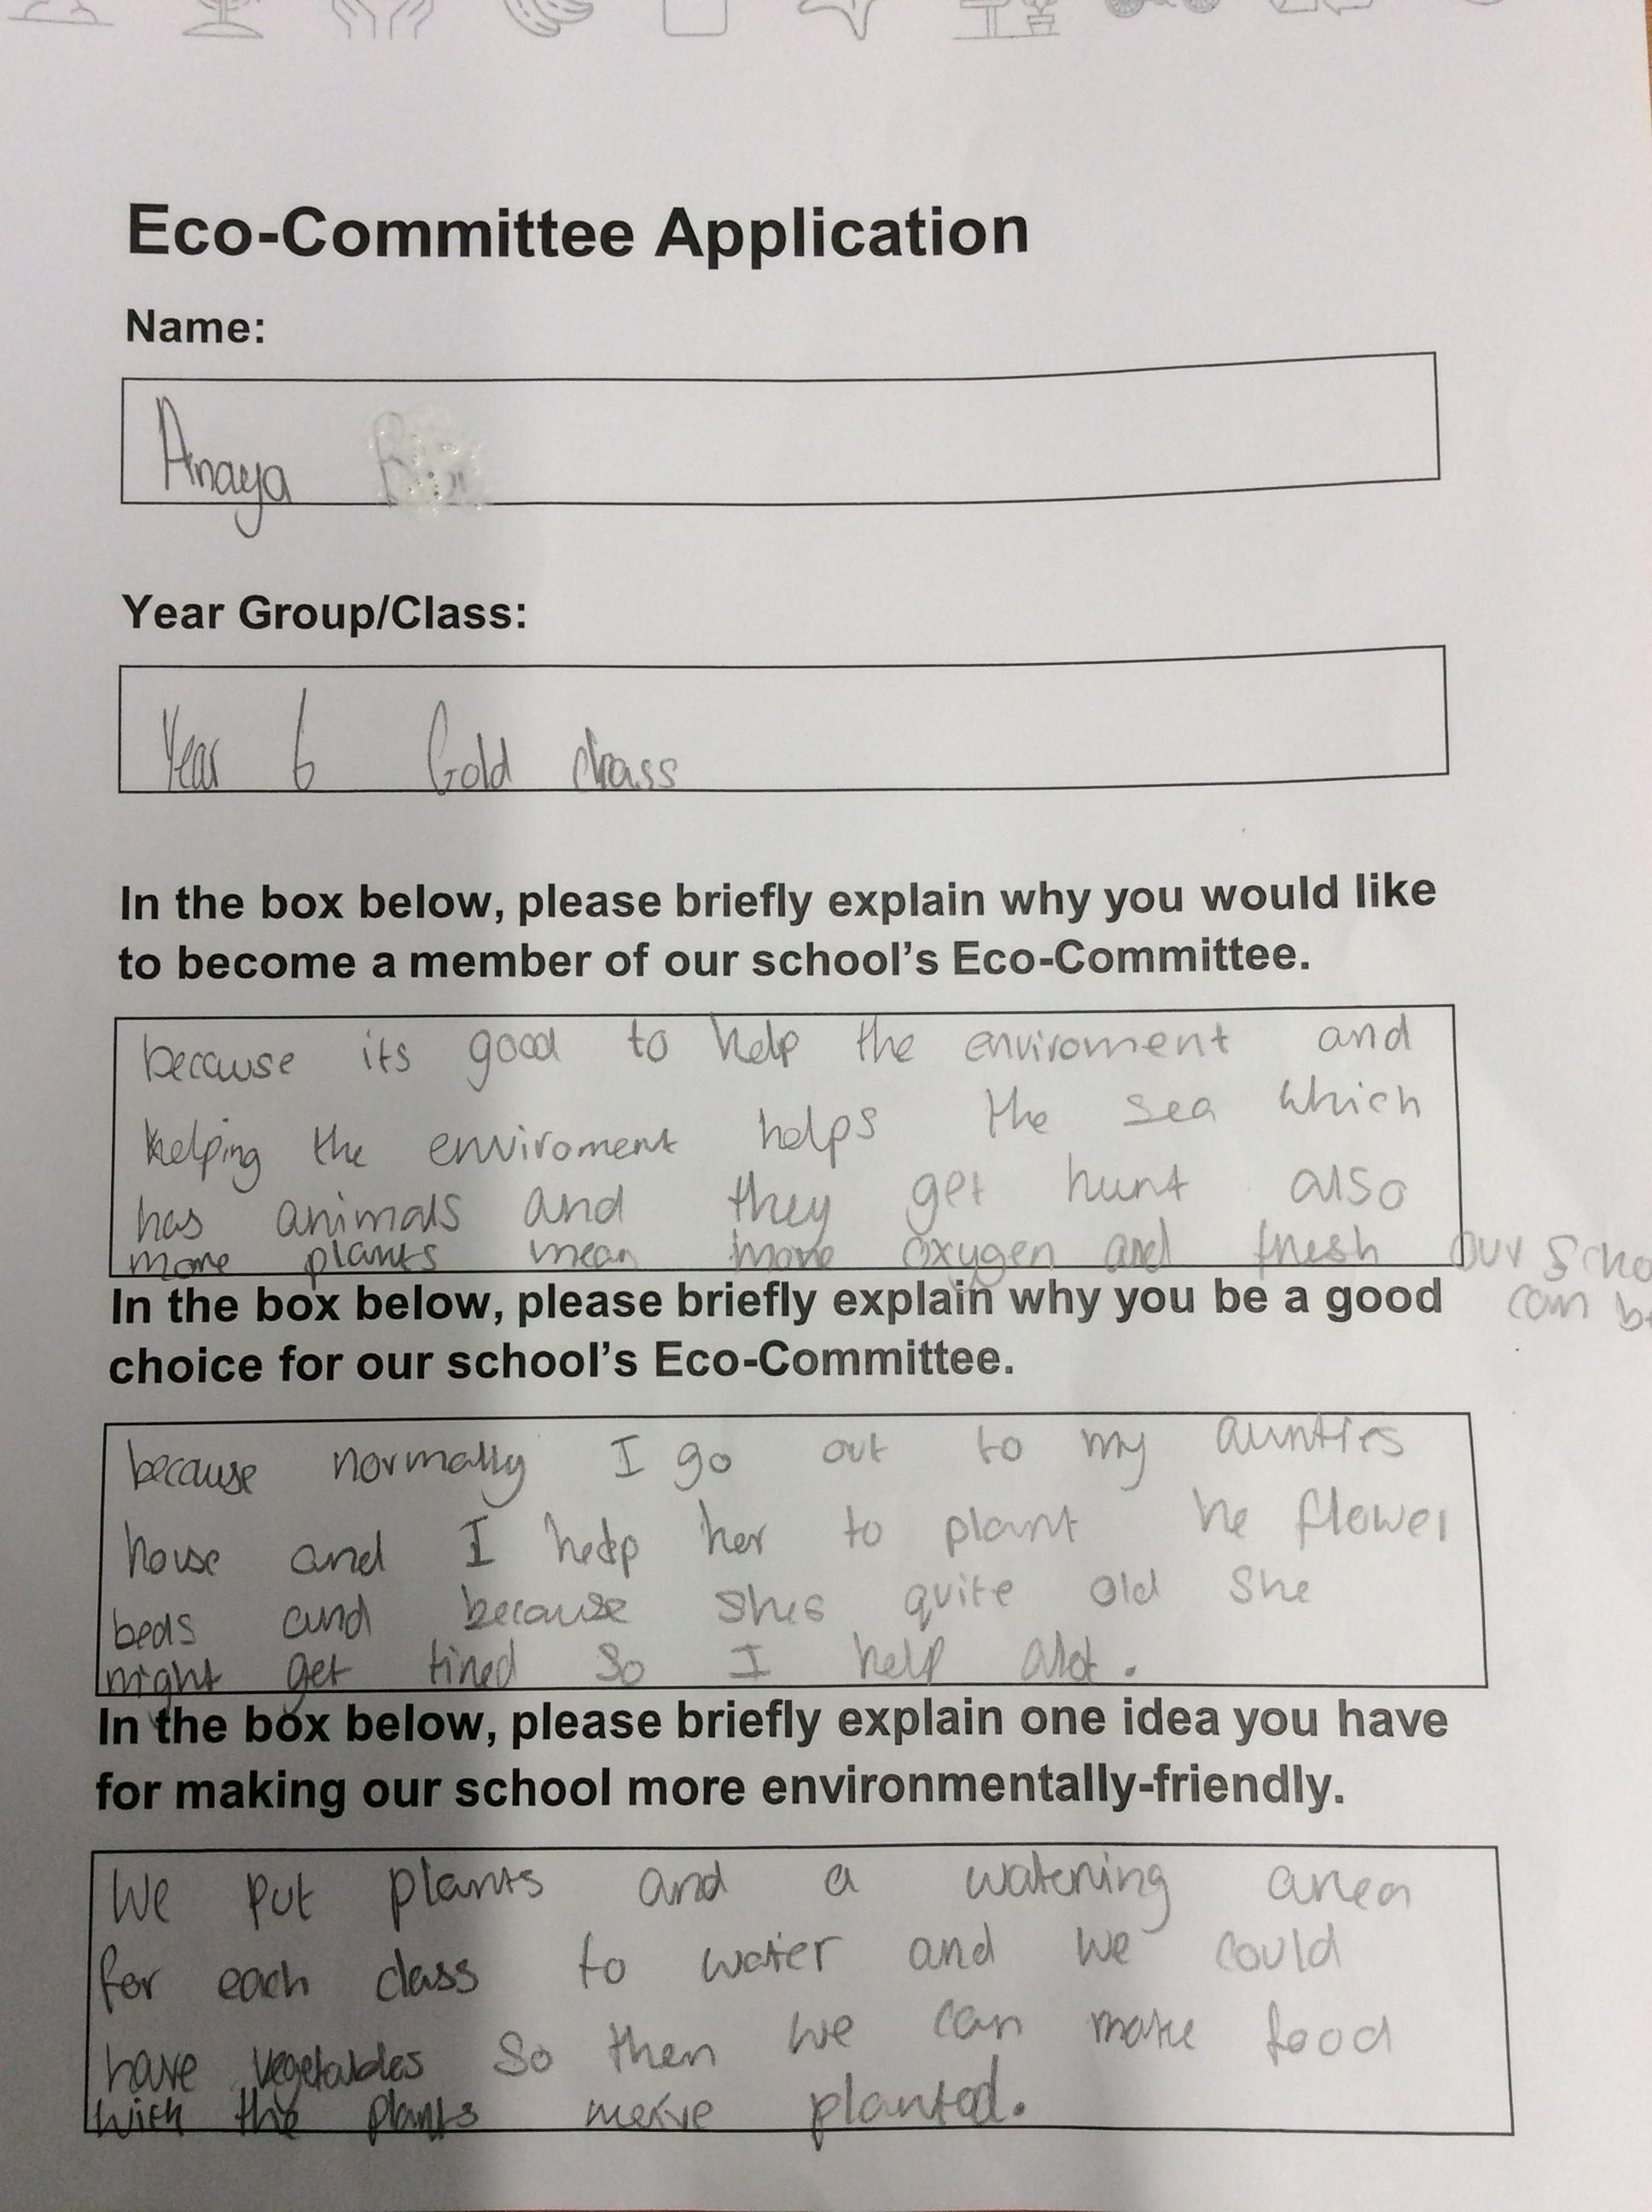 Eco-Committee Application
Name:
Anaya
Year Group/Class:
Year 6 Gold class
In the box below, please briefly explain why you would like
to become a member of our school's Eco-Committee.
because its good to help the enviroment and
helping the enviroment helps the sea which
has animals and they get hunt also
more plants mean more oxygen and fresh our scho
can be
In the box below, please briefly explain why you be a good
choice for our school's Eco-Committee.
because normally I go out to my aunties
house and I help her to plant he flower
beds and because shes quite old she
might get tired so I help alot.
In the box below, please briefly explain one idea you have
for making our school more environmentally-friendly.
We put plants and a watering area
for each class to water and we could
have vegetables so then we can make food
with the plants planted.